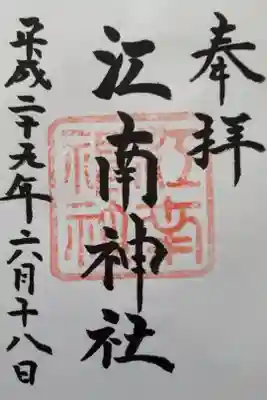 奉拝
江南神社
平成二十九年六月十八日
江南
神社